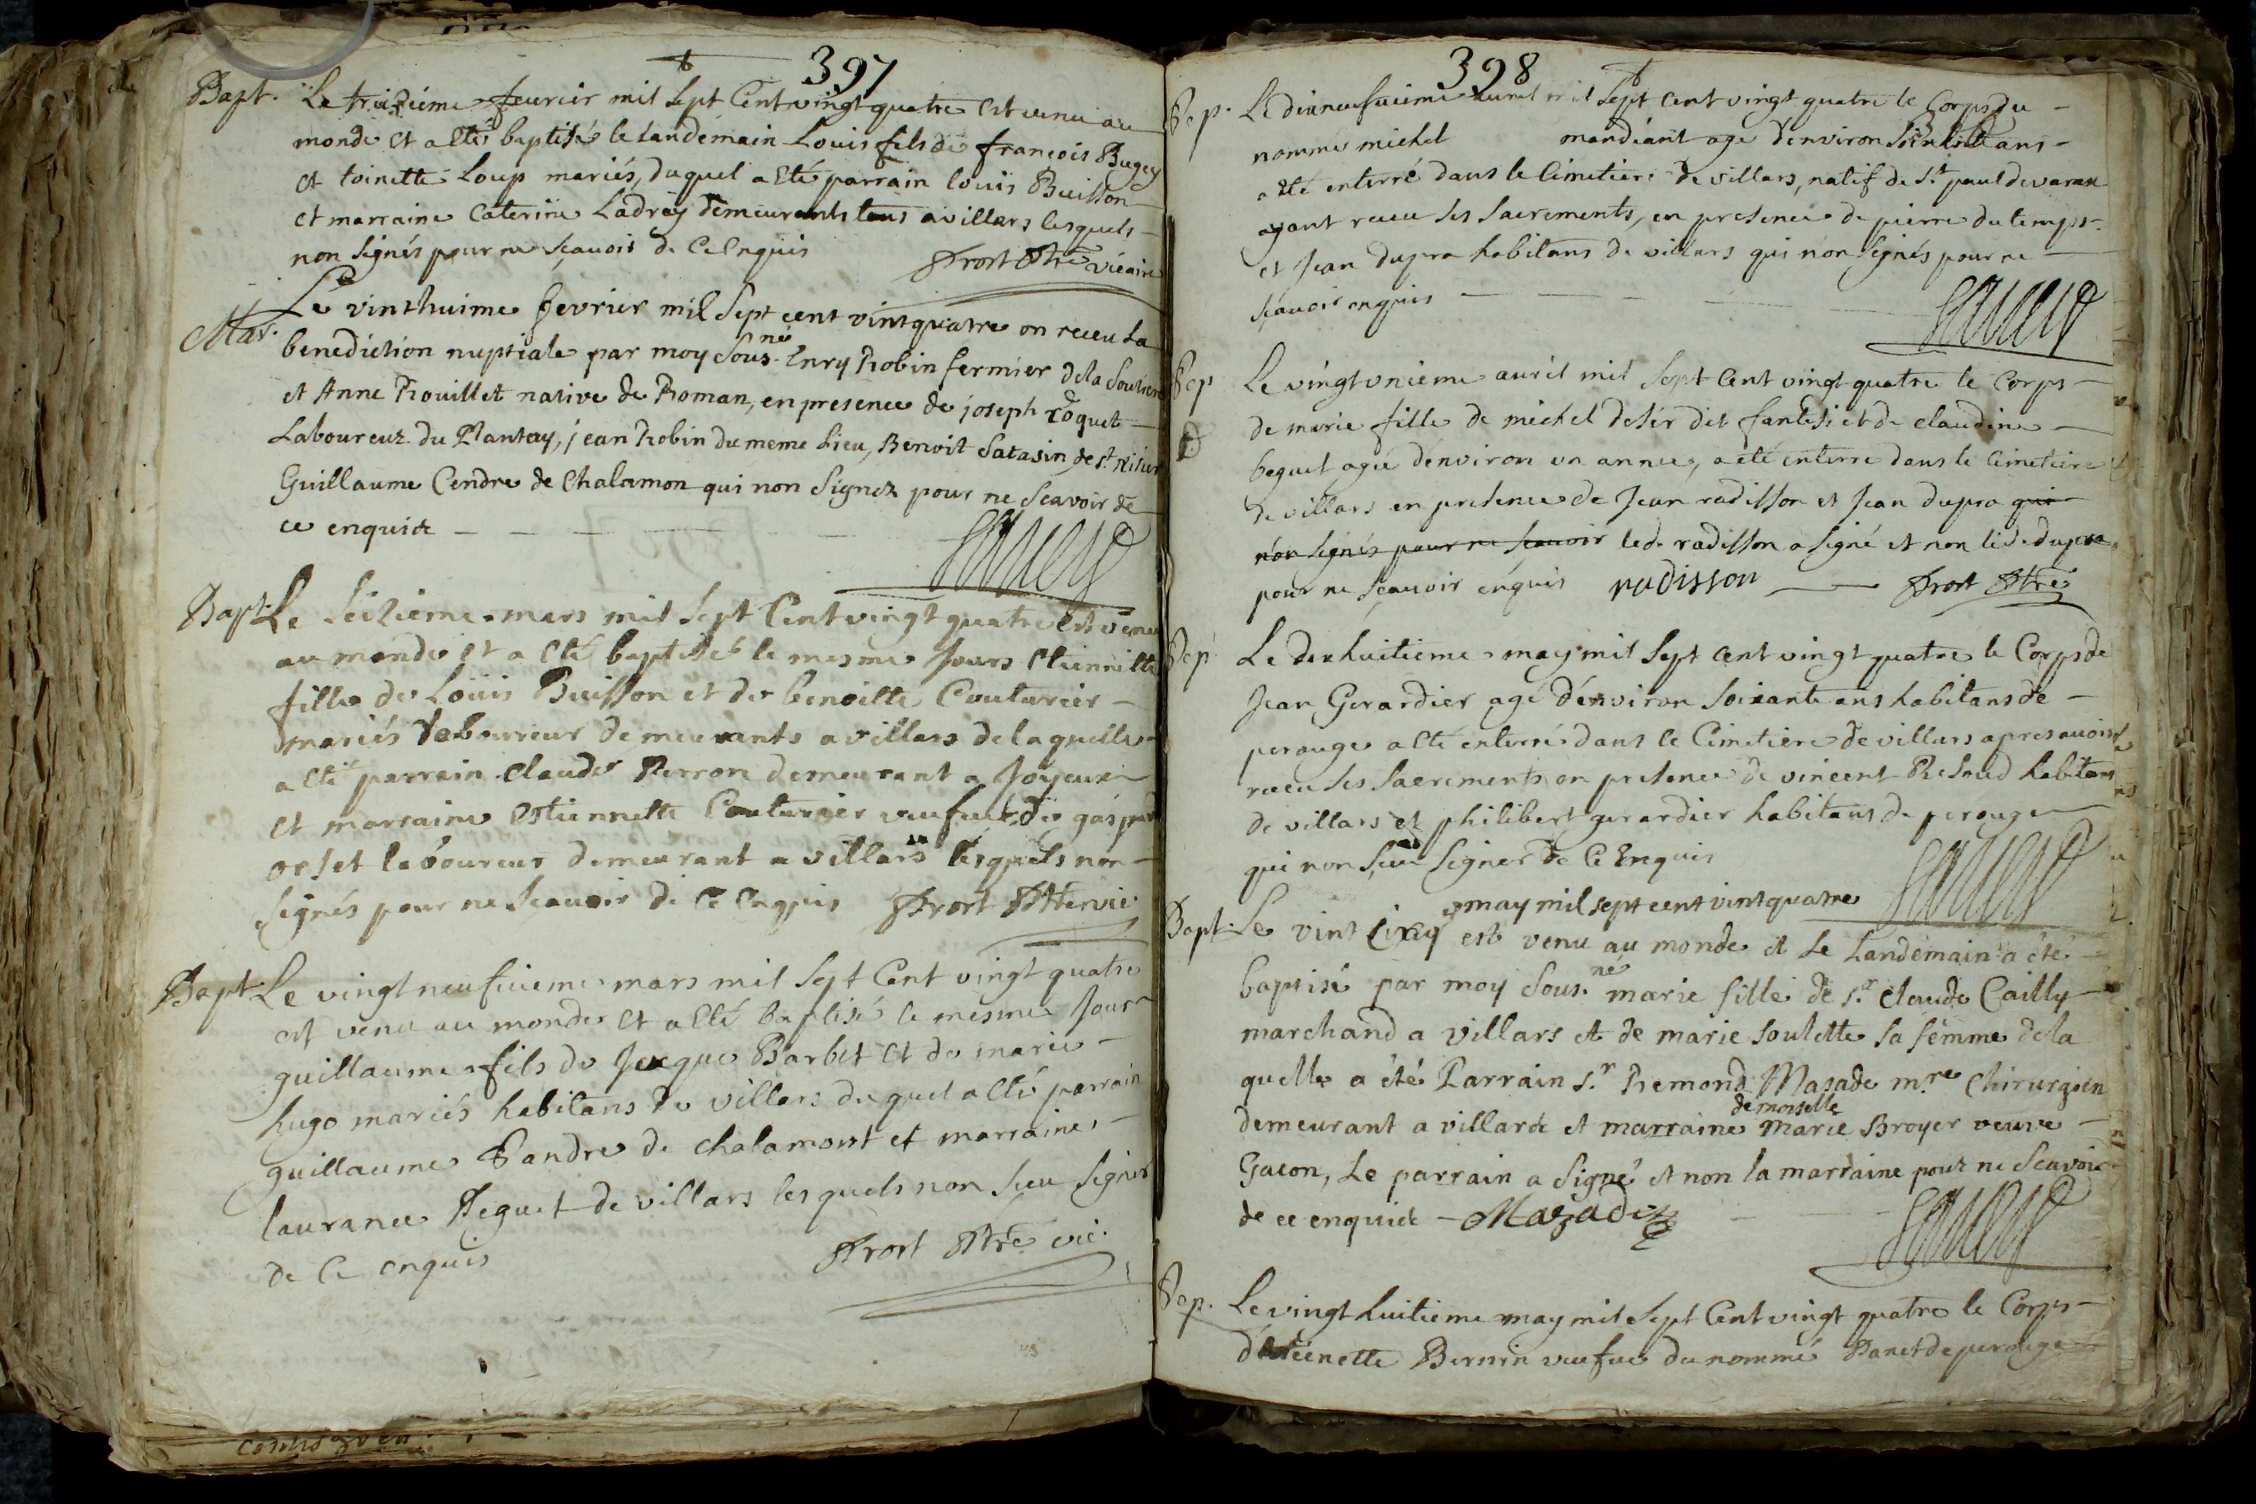 397
Bapt. Le treizième feurier mil sept Cent vingt quatre est venu au
monde et a eté baptisé le landemain Louis fils de françois Bugey
et toinette Loup mariés, duquel a eté parrain louis Buisson
et marraine Caterine Ladray demeurants tous a villars lesquels
non signés pour ne sçauoir de Ce enquis Prost Ptre vicaire
Mar. Le vinthuime fevrier mil sept cent vintquatre on receu La
benediction nuptiale par moy Sous.né Enry Robin fermier de la
et Anne Rouillet native de Roman, en presence de joseph roquet
Laboureur du Plantay, jean Robin du meme Lieu, Benoit Satasin de st
Guillaume Cendre de Chalamon qui non Signez pour ne Scavoir de
ce enquidt
Bapt. Le Seizieme mars mil sept Cent vingt quatre est venu
au monde et a eté baptisé le mesme Jours etiennette
fille de Loüis Buisson et de benoitte Couturier
mariés laboureur demeurants a villars de laquelle
a eté parrain Claude Perron demeurant a Joyeux
et marraine Estiennette Couturier veufue de gaspard
orset laboureur demeurant a villars lesquels non
signés pour ne Scauoir de Ce Enquis Prost Ptre vic.
Bapt. Le vingt neufuieme mars mil sept Cent vingt quatre
est venu au monde et a eté baptisé le mesme Jour
guillaume fils de Jacque Barbet et de marie
hugo mariés habitans de villars duquel a eté parrain
guillaume Pandre de chalamont et marraine
laurance Peguet de villars les quels non sceu signer
de Ce enquis Prost Ptre vic.
398
Sep. Le dixneufuieme auril mil sept cent vingt quatre le Corps du
nommé michel mandéant agé d'environ ans
a eté enterré dans le Cimetiere de villars, natif de St. paul de varax
ayant receu ses sacrements, en presence de pierre du temps
et Jean dupra habitans de villars qui non signés pour ne
sçauoir enquis
Sep Le vingt unieme auril mil sept Cent vingt quatre le Corps
de marie fille de michel deser dit et de claudine
beguet agée denviron un année, a eté enterre dans le Cimetiere
de villars en presence de Jean radisson et Jean dupra qui
non signés pour ne scauoir led. radisson a signé et non led. dupra
pour ne sçauoir enquis radisson Prost Ptre
Sep Le dix huitieme may mil sept cent vingt quatre le Corps de
Jean Gerardier agé d'environ soixante ans habitans de
perouge a eté enterré dans le Cimetiere de villars apres auoir
receu ses sacrements en presence de vincent habitans
de villars et philibert gerardier habitans de perouge
qui non sceu signer de Ce Enquis
may mil sept cent vintquatre
Bapt. Le vint est venu au monde et Le Landemain a été
baptisé par moy Sous.né marie fille de s.r Claude Cailly
marchand a villars et de marie soulette sa femme de la
quelle a été Parrain s.r Remond Mazade m.re Chirurgien
demoiselle
demeurant a villardt et marraine Marie Broyer veuve
Gacon, Le parrain a signé et non la marraine pour ne Scavoir
de ce enquidt Mazade
Sep. Le vingt huitieme may mil sept Cent vingt quatre le Corps
d'Estienette Bernin veufue du nommé Danet de perouge